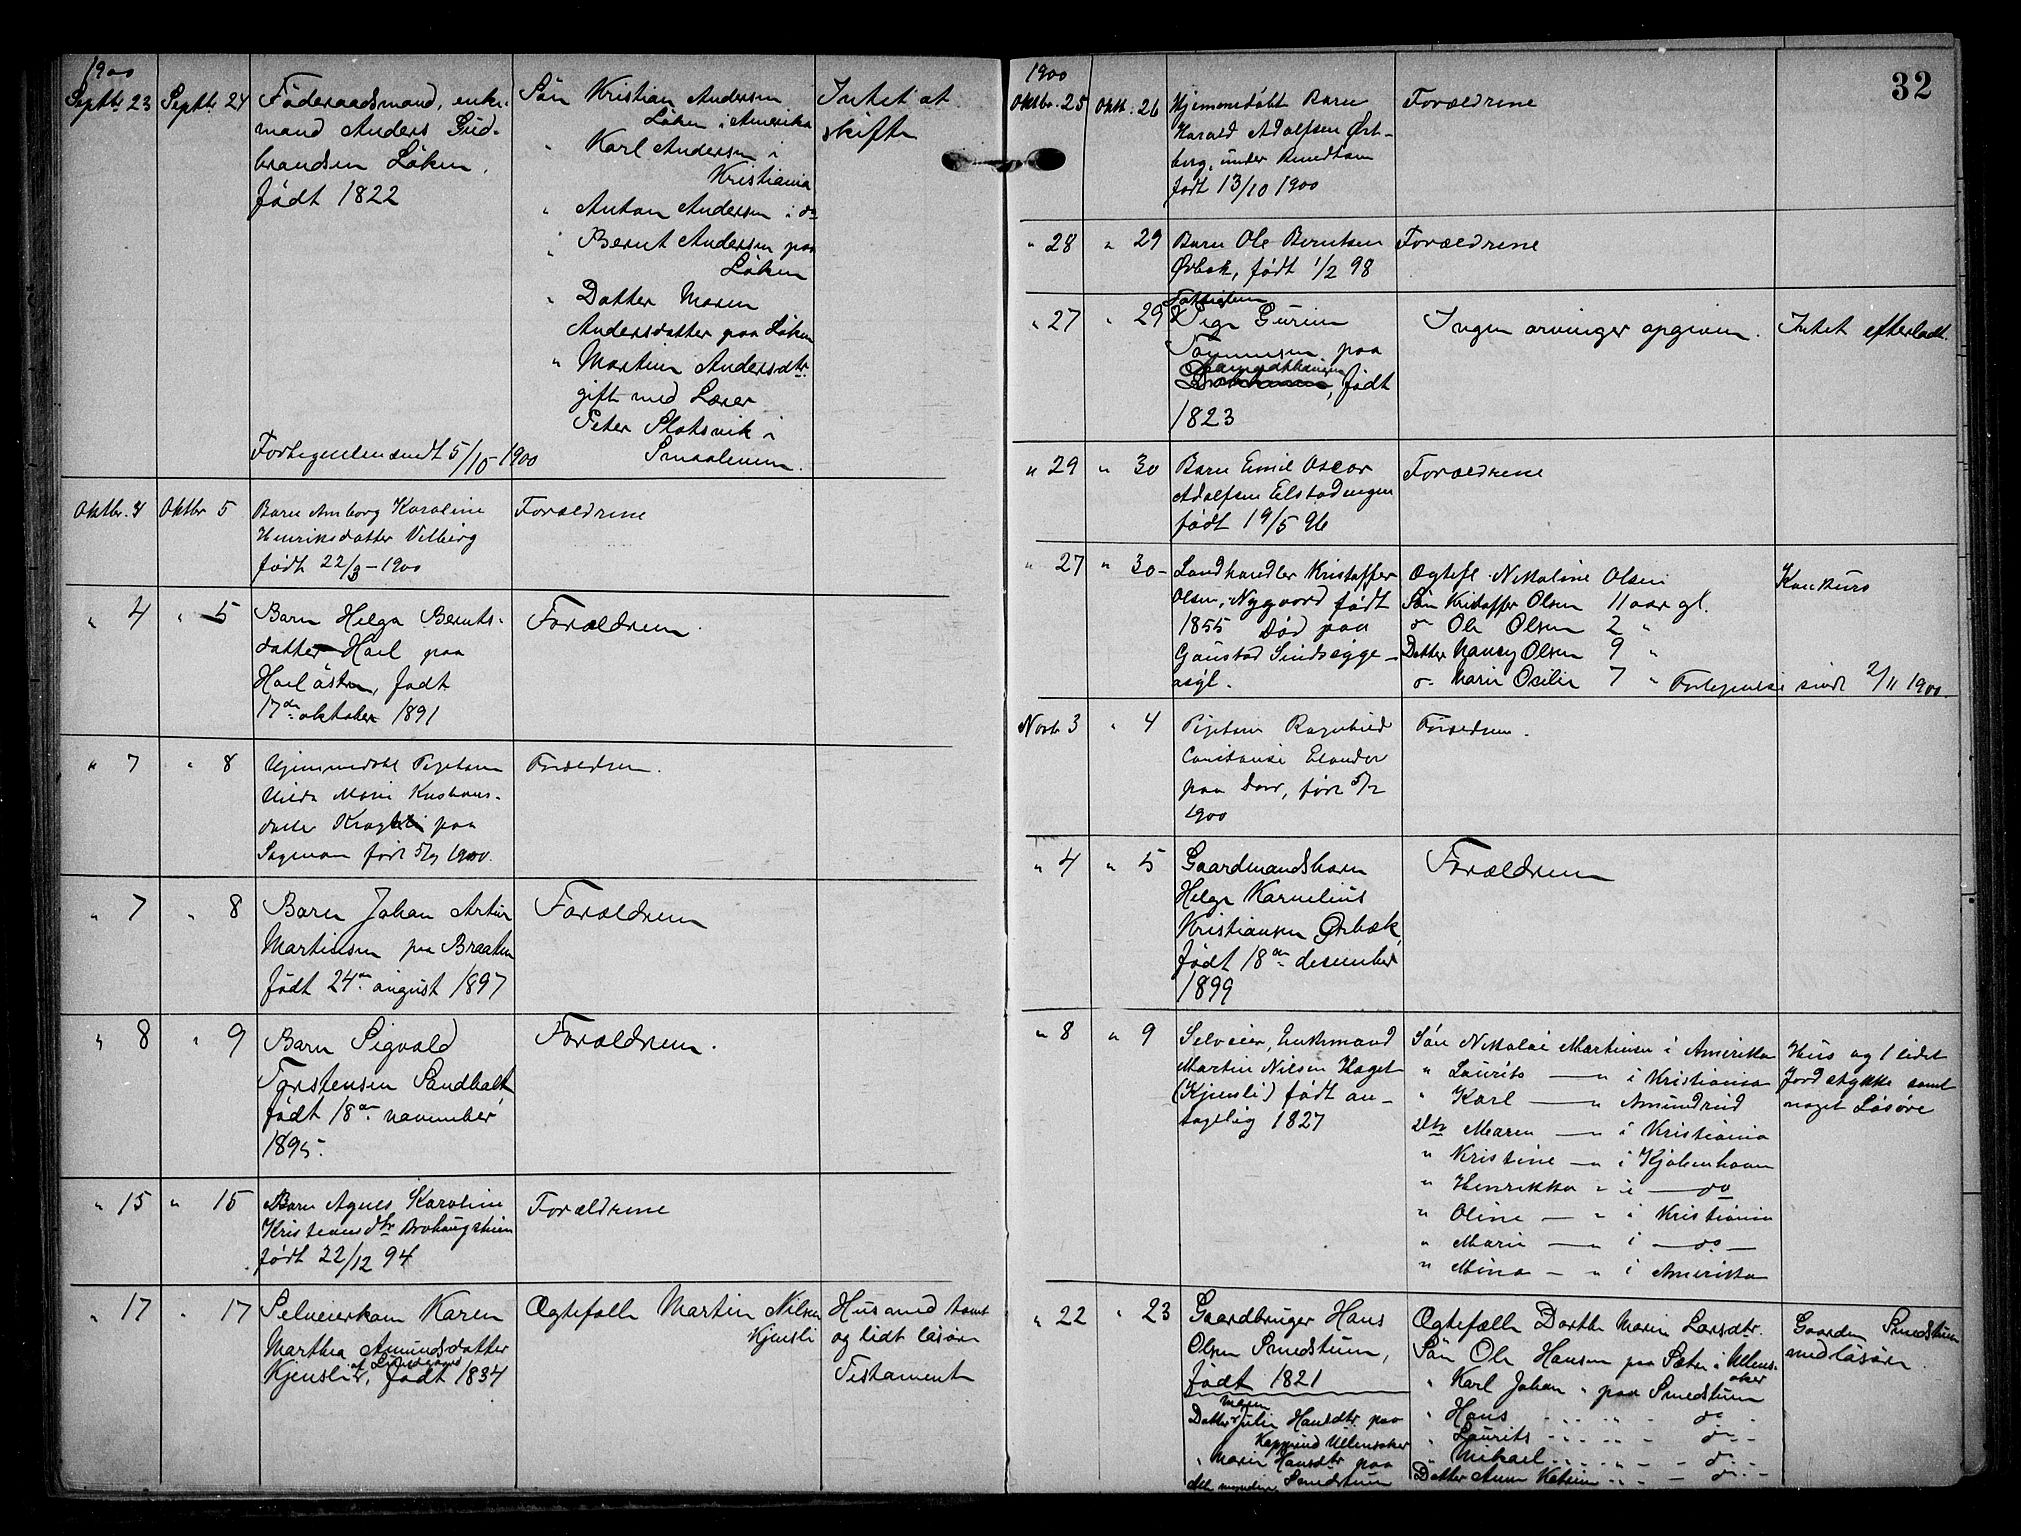 1900
Septbr 23 Septbr 24 Föderaadsmand, enke-
mand Anders Gud-
brandsen Löken,
født 1822
Sön Kristian Andersen
Löken i Amerika
" Karl Andersen i
Kristiania
" Anton Andersen i do
" Bernt Andersen paa
Löken
" Datter Maren
Andersdatter paa Löken
" Martine Andersdtr.
gift med Lærer
Peter Slotsvik i
Smaalenene.
Intet at
skifte
Fortegnelsen sendt 5/10 1900
Oktbr. 4 Oktbr 5 Barn Amborg Karoline
Henriksdatter Vilberg
født 22/3 - 1900
Forældrene
" 4 " 5 Barn Helga Bernts-
datter Hoel paa
Hoel östre, født
17de oktober 1891
Forældrene
" 7 " 8 Hjemmedöbt Pigebarn
Hilda Marie Kristians-
datter Kragtli paa
født 5/9 1900.
Forældrene.
" 7 " 8 Barn Johan Artur
Martinsen paa Braaten
født 24de august 1897
Forældrene
" 8 " 9 Barn Sigvald
Torstensen Sandholt
født 18de november
1895.
Forældrene.
" 15 " 15 Barn Agnes Karoline
Kristiansdtr Brohaugsteien
født 22/12 94
Forældrene
" 17 " 17 Selveierkone Karen
Marthea Amundsdatter
Kjensli, født 1834
Ægtefælle Martin Nilsen
Kjensli
Hus med tomt
og lidt løsøre
Testament
32
1900
Oktbr. 25 Oktb. 26 Hjemmedöbt Barn
Harald Adolfsen Ør-
berg, under
født 13/10 1900
Forældrene
" 28 " 29 Barn Ole Berntsen
Ørbæk, født 1/2 98
Forældrene
" 27 " 29 Fattiglem
Pige Gurine
Tommesen paa
født
1823
Ingen arvinger opgiven.
Intet efterladt.
" 29 " 30 Barn Emil Oscar
Adolfsen Elstadengen
født 19/5 96
Forældrene
" 27 " 30 - Landhandler Kristoffer
Olsen, Nygaard født
1855 Død paa
Gaustad Sindssyge-
asyl.
Ægtef. Nikoline Olsen
Sön Kristoffer Olsen 11 aar gl.
do Ole Olsen 2 "
Datter Nancy Olsen 9 "
do Marie Osilie 7 " Fortegnelse sendt 2/11 1900.
Konkurs
Novb 3 " 4 Pigebarn Ragnhild
Constanse Elander
paa Dær, født 5/2
1900
Forældrene.
" 4 " 5 Gaardmandsbarn
Helge Kornelius
Kristiansen Ørbæk,
født 18de desember
1899
Forældrene
" 8 " 9 Selveier, Enkemand
Martin Nilsen Haget
(Kjensli) født an-
tagelig 1827
Sön Nikolai Martinsen i Amerika
" Laurits — " i Kristiania
" Karl — " Amundrud
Dtr Maren — " i Kristiania
" Kristine — " i Kjøbenhavn
" Henrikka " i — do
" Oline — " i Kristiania
" Marie — " i — do —
" Mina — " i Amerikka
Hus og 1 lidet
Jordstykke samt
noget Løsøre
" 22 " 23 Gaardbruger Hans
Olsen Smedstuen,
født 1821
Ægtefælle Dorthe Maren Larsdtr.
Sön Ole Hansen paa Sæter i Ullens-
aker
" Karl Johan " paa Smedstuen
" Hans do -
" Laurits do -
" Mikael do -
Datter Anne Katrine do -
Gaarden Smedstuen
med løsøre.
Maren
Datter Julie Hansdtr paa
Ullensaker
" Maren Hansdtr paa
Smedstuen